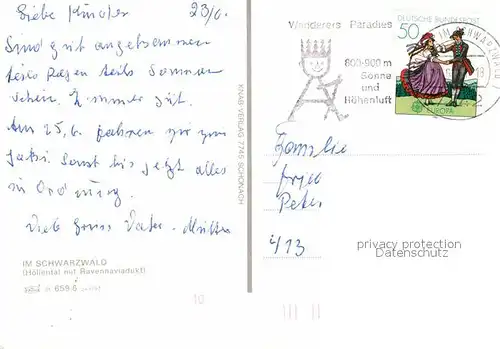 Liebe Kinder 23/6.
Sind gut angekommen
teils Regen teils Sonnen
schein. Zimmer gut.
Am 25.6. fahren wir zum
Sonst bis jetzt alles
in Ordnung.
Viele Gruss Vater. Mutter
IM SCHWARZWALD
(Höllental mit Ravennaviadukt)
659.6
10
KNAB-VERLAG 7745 SCHONACH
Wanderers Paradies
800-900 m
Sonne
und
Höhenluft
DEUTSCHE BUNDESPOST
50
EUROPA
IM SCHWARZWALD
Familie
Peter
413
privacy protection
Datenschutz